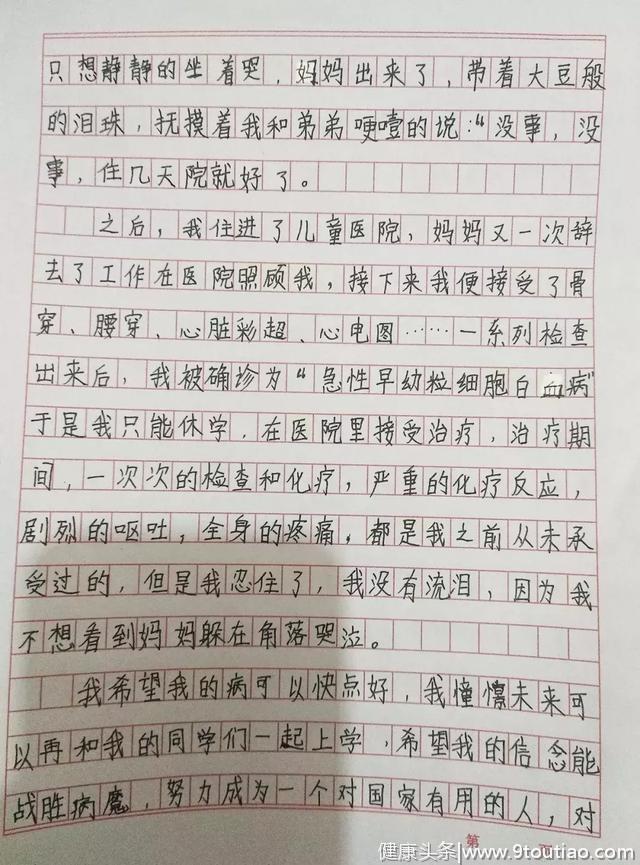 只想静静的坐着哭，妈妈出来了，带着大豆般
的泪珠，抚摸着我和弟弟哽噎的说："没事，没
事，住几天院就好了。
之后，我住进了儿童医院，妈妈又一次辞
去了工作在医院照顾我，接下来我便接受了骨
穿、腰穿、心脏彩超、心电图……一系列检查
出来后，我被确诊为"急性早幼粒细胞白血病"
于是我只能休学，在医院里接受治疗，治疗期
间，一次次的检查和化疗，严重的化疗反应，
剧烈的呕吐，全身的疼痛，都是我之前从未承
受过的，但是我忍住了，我没有流泪，因为我
不想看到妈妈躲在角落哭泣。
我希望我的病可以快点好，我憧憬未来可
以再和我的同学们一起上学，希望我的信念能
战胜病魔，努力成为一个对国家有用的人，对
第 页
健康头条|www.9toutiao.com